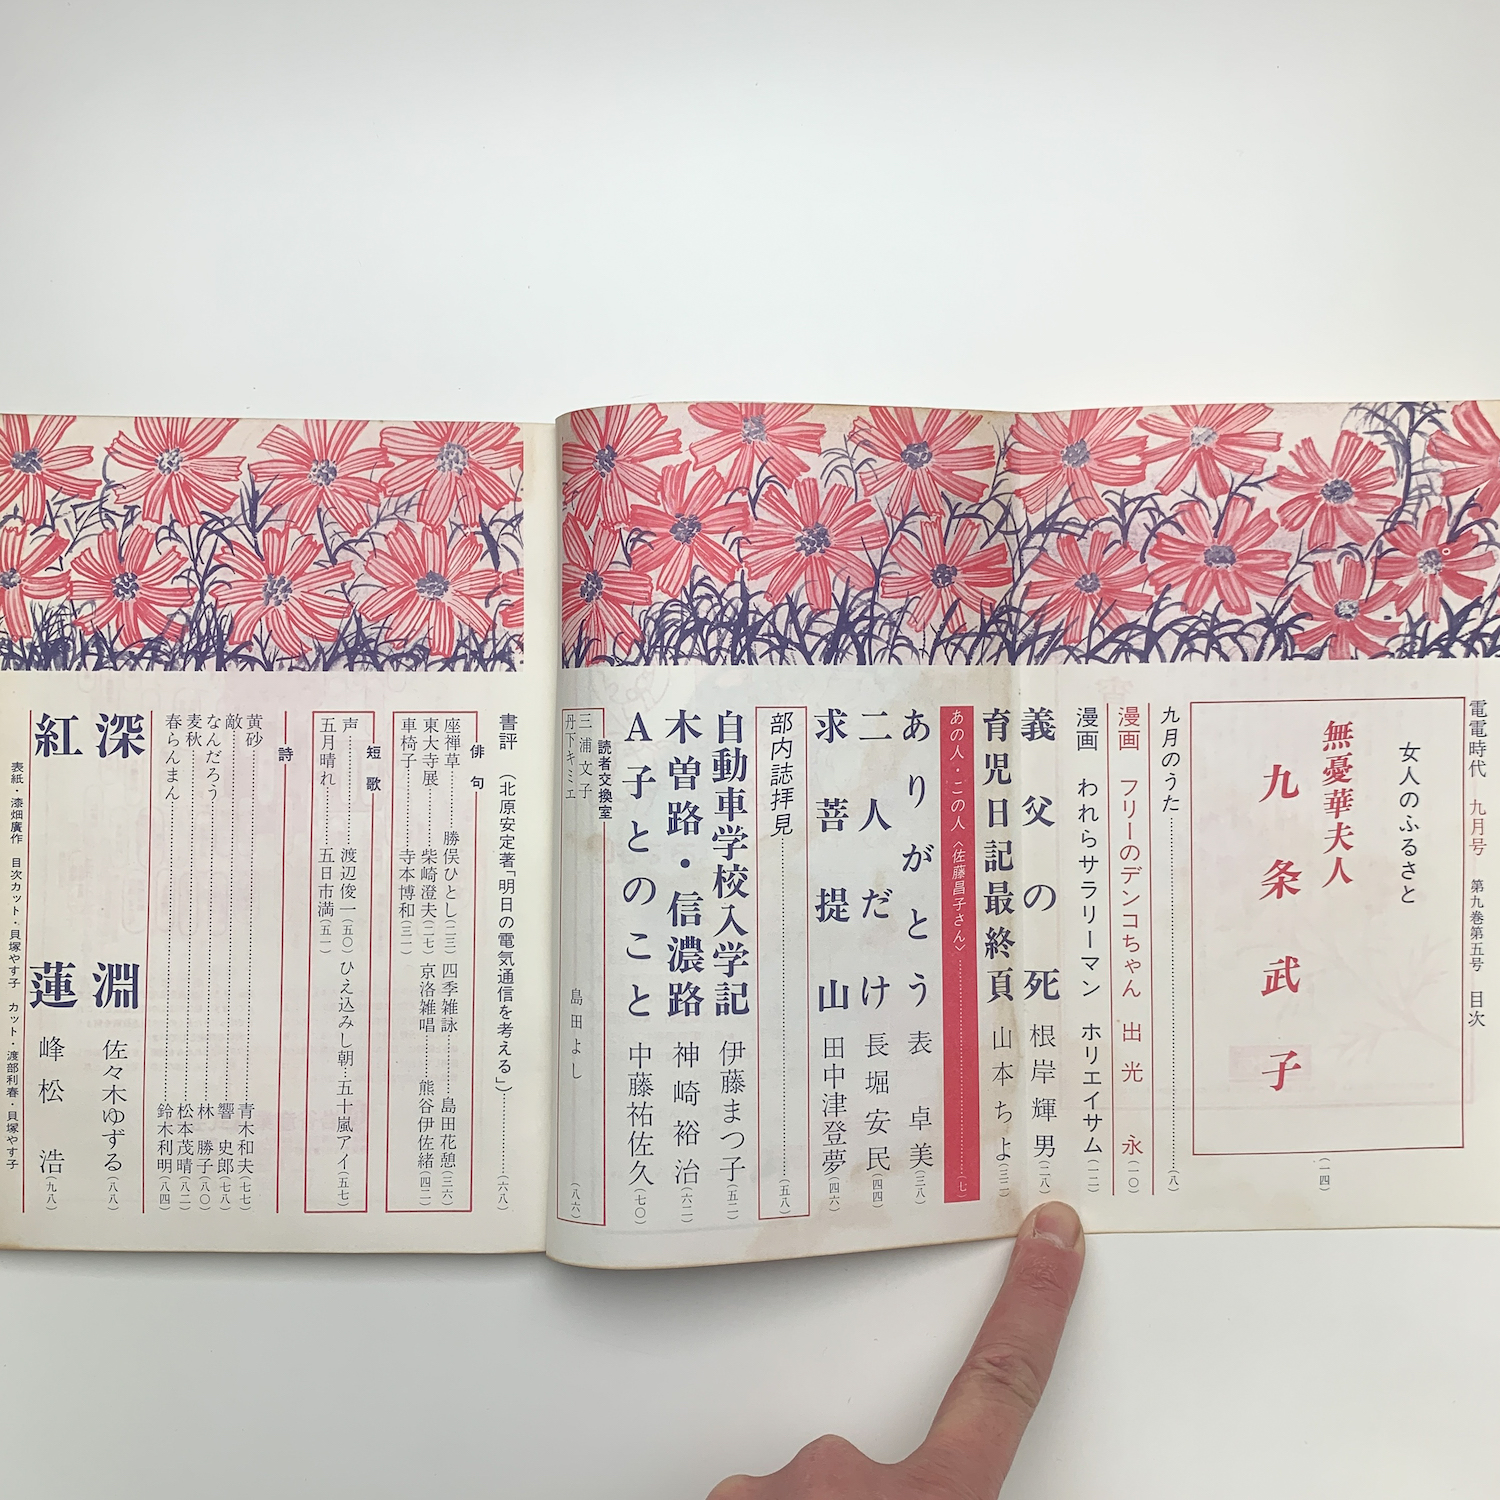 電電時代 九月号 第九巻第五号 目次
女人のふるさと
無憂華夫人
九条武子
(一四)
九月のうた(八)
漫画 フリーのデンコちゃん 出光 永(一〇)
漫画 われらサラリーマン ホリエイサム(一二)
義父の死 根岸輝男(二八)
育児日記最終頁 山本ちよ(三二)
あの人・この人〈佐藤昌子さん〉(七)
ありがとう 表 卓美(三八)
二人だけ 長堀安民(四四)
求菩提山 田中津登夢(四六)
部内誌拝見(五八)
自動車学校入学記 伊藤まつ子(五二)
木曽路・信濃路 神崎裕治(六二)
A子とのこと 中藤祐佐久(七〇)
読者交換室
三浦文子 島田よし
丹下キミエ(八六)
書評(北原安定著「明日の電気通信を考える」)(六八)
俳句
座禅草 勝俣ひとし(二三) 四季雑詠 島田花憩(三六)
東大寺展 柴崎澄夫(二七) 京洛雑唱 熊谷伊佐緒(四二)
車椅子 寺本博和(三一)
短歌
声 渡辺俊一(五〇) ひえ込みし朝 五十嵐アイ(五七)
五月晴れ 五日市満(五一)
詩
黄砂 青木和夫(七七)
敵 響 史郎(七八)
なんだろう 林 勝子(八〇)
麦秋 松本茂晴(八二)
春らんまん 鈴木利明(八四)
深淵 佐々木ゆずる(八八)
紅蓮 峰松 浩(九八)
表紙・漆畑廣作 目次カット・貝塚やす子 カット・渡部利春・貝塚やす子